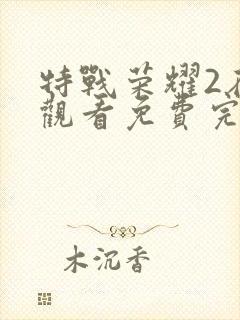 特戰荣耀2在
觀看免費完
木沉香